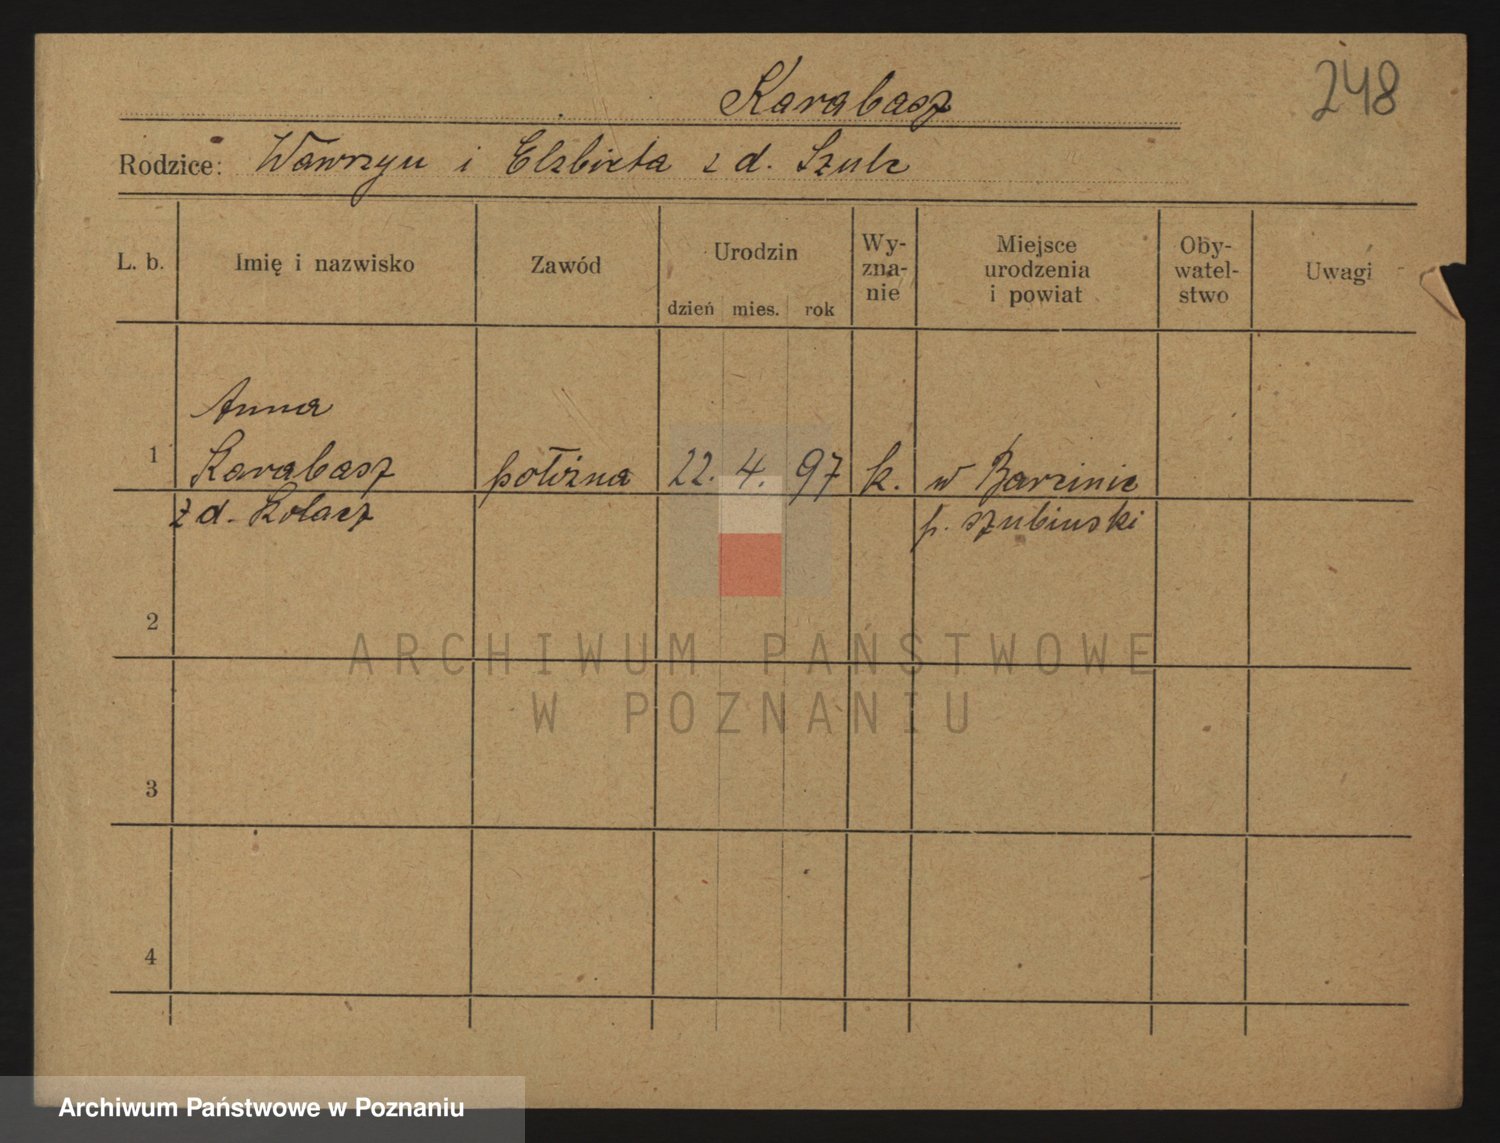 248
Karabasz
Rodzice: Wawrzyn i Elzbieta z d. Szulc
L. b.
Imię i nazwisko
Zawód
Urodzin
dzień mies. rok
Wy-
zna-
nie
Miejsce
urodzenia
i powiat
Oby-
watel-
stwo
Uwagi
Anna
1 Karabasz położna 22. 4. 97 k. w Barcinie
z d. Kołacz p. szubinski
2
3
4
ARCHIWUM PAŃSTWOWE
W POZNANIU
Archiwum Państwowe w Poznaniu